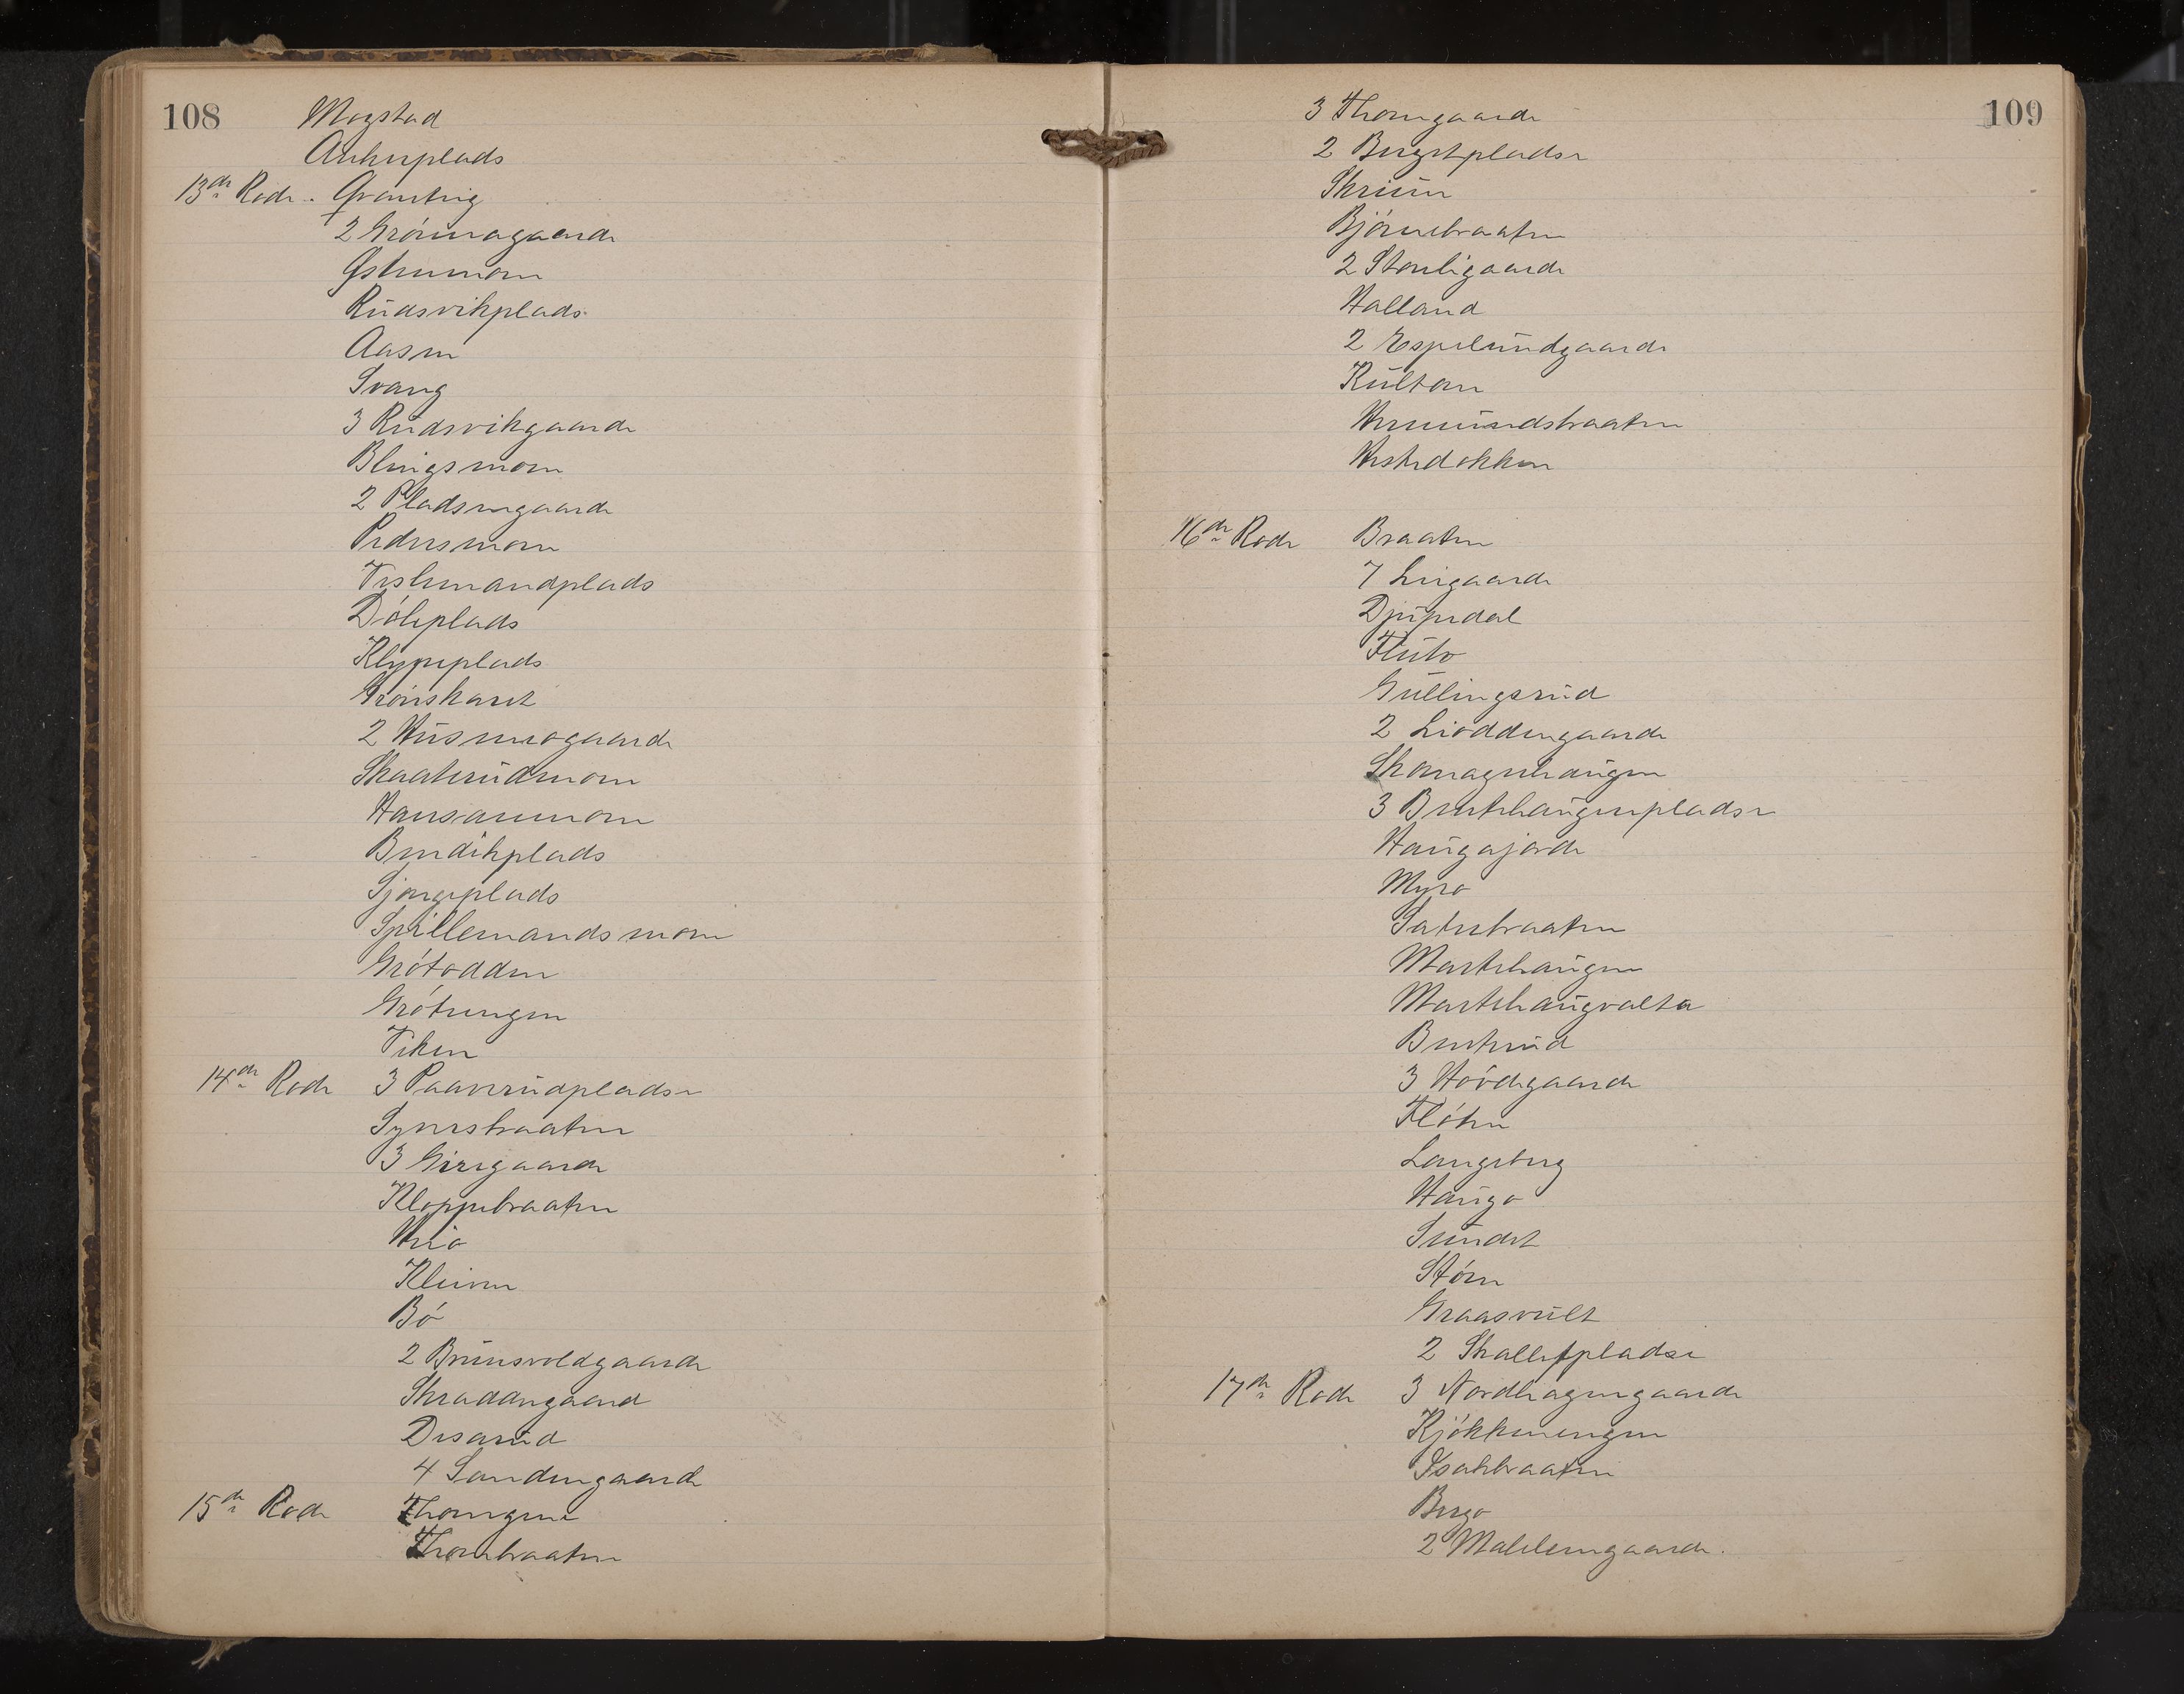 108
Mogstad
Ankerplads
13de Rode. Grantrig
2 Grönnagaarde
Gstenmoen
Rudsvikplads
Aasen
Svang
3 Rudsvikgaarde
Blingsmoen
2 Pladsengaarde
Pedersmoen
Teslemandplads
Döleplads
Klypeplads
Grönskaret
2 Husmogaarde
Skaaterudmoen
Hansanmoen
Bendikplads
Sjongeplads
Spillemandsmoen
Grötodden
Grötungen
Teken
14de Rode 3 Paaverudpladse
Synersbraaten
3 Girigaarde
Kloppebraaten
Mio
Kleiven
Bö
2 Brunsvoldgaarde
Skraddargaard
Desarud
4 Sandengaarde
15de Rode Thoengene
Thoenbraaten
109
3 Thoengaarde
2 Bergetpladse
Skrium
Björnebraaten
2 Stonligaarde
Halland
2 Espelundgaarde
Kulton
Vermundsbraaten
Vestedokken
16de Rode Braaten
7 Liegaarde
Djupedal
Fluto
Gullingsrud
2 Lioddengaarde
Skomagerhaugen
3 Bentehaugenpladse
Haugajorde
Myro
Saterbraaten
Martehaugen
Martehaugvalta
Benterud
3 Hövdegaarde
Flöten
Langeberg
Haugo
Sundet
Stöen
Graasvult
2 Skallefpladse
17de Rode 3 Nordhagengaarde
Kjökkenengen
Isakbraaten
Bergo
2 Mahlemgaarde.